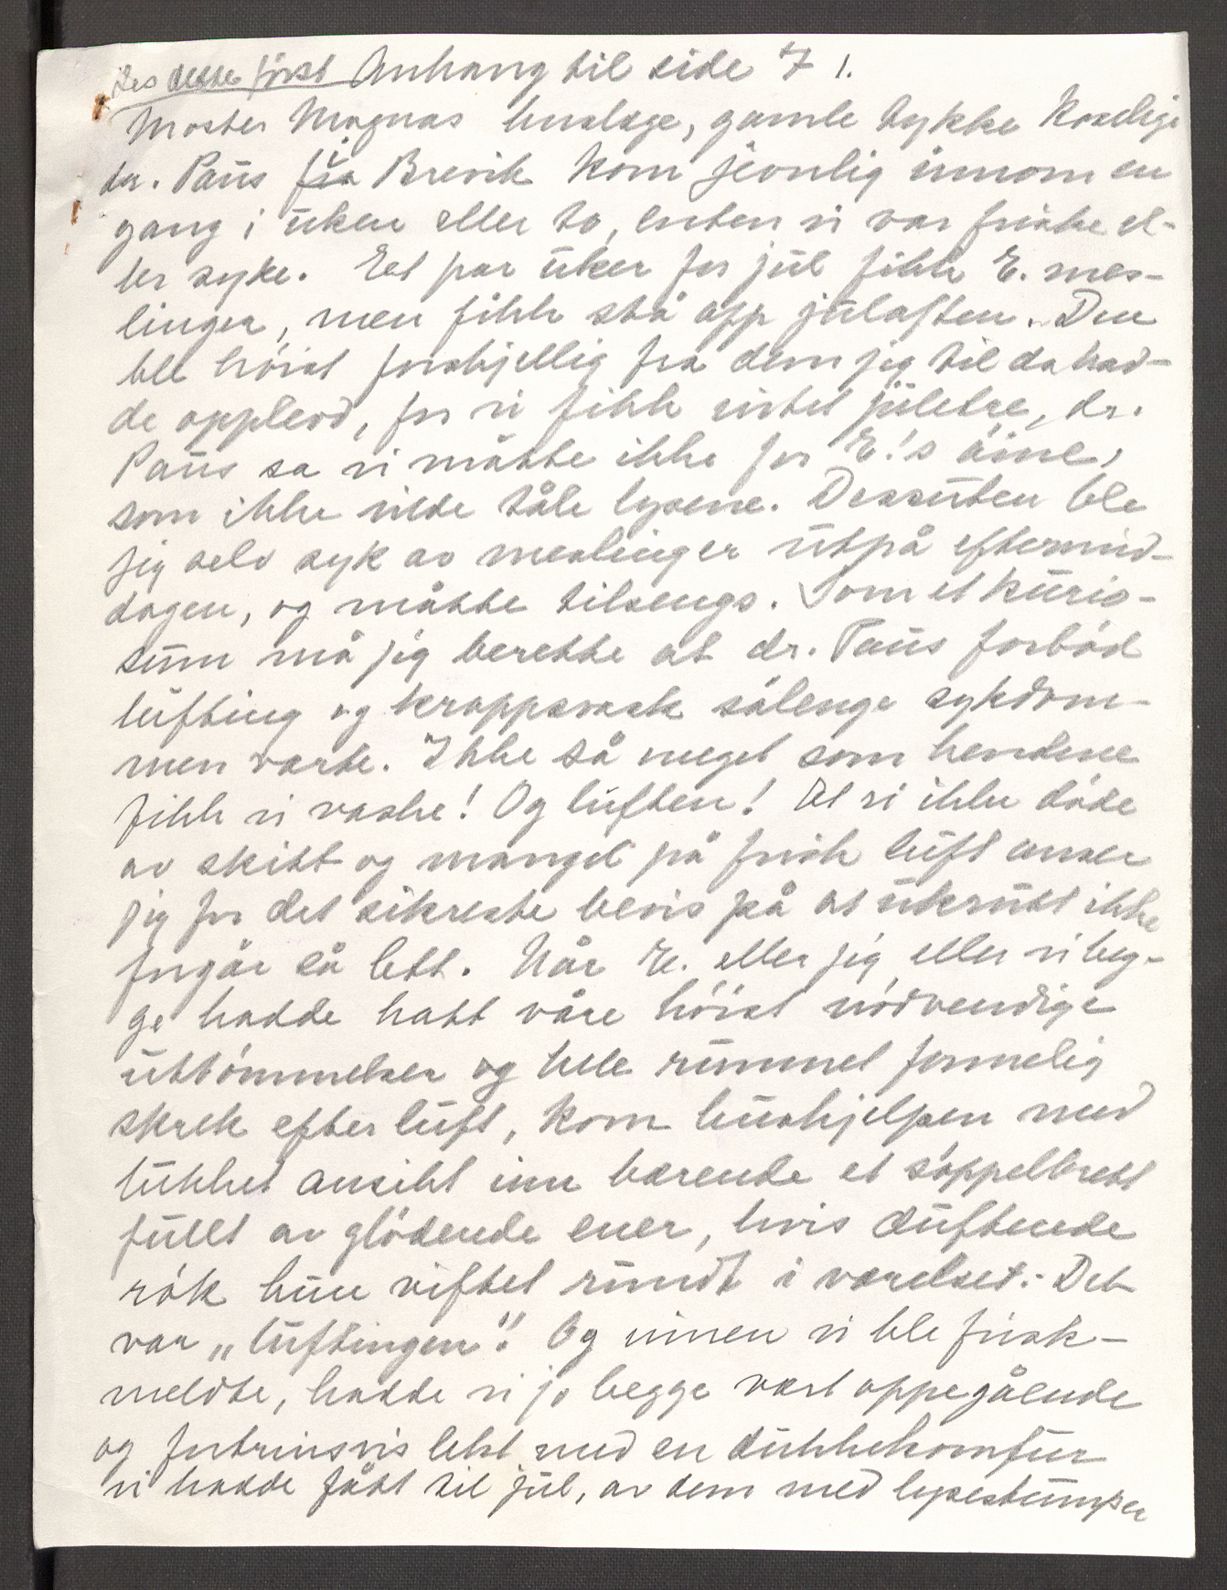 Les dette först Anhang til side 7 1.
Moster Magnas huslege, gamle tykke koselige
dr. Paus fra Brevik kom jevnlig innom en
gang i uken eller to, enten vi var friske el-
ler syke. Eet par uker før jul fikk E. mes-
linger, men fikk stå opp julaften. Den
ble höist forskjellig fra dem jeg til da had-
de opplevd, for vi fikk intet juletre, dr.
Paus sa vi måtte ikke for E.'s öine,
som ikke vilde tåle lysene. Dessuten ble
jeg selv syk av meslinger utpå eftermid-
dagen, og måtte tilsengs. Som et kurio-
sum må jeg berette at dr. Paus forbød
lufting og kroppsvask sålenge sykdom-
men varte. Ikke så meget som hendene
fikk vi vaske! Og luften! At vi ikke døde
av skitt og mangel på frisk luft anser
jeg for det sikreste bevis på at ukrutt ikke
forgår så lett. Når E. eller jeg eller vi beg-
ge hadde hatt våre höist nödvendige
uttömmelser og hele rummet formelig
skrek efter luft, kom hushjelpen med
lukket ansikt inn bærende et söppelbrett
fullt av glödende ener, hvis duftende
rök hun viftet rundt i værelset.- Det
var „luftingen"! Og innen vi ble frisk-
meldte, hadde vi jo begge vært oppegående
og fortrinsvis lekt med en dukkekomfur
vi hadde fått til jul, av dem med lysestumper